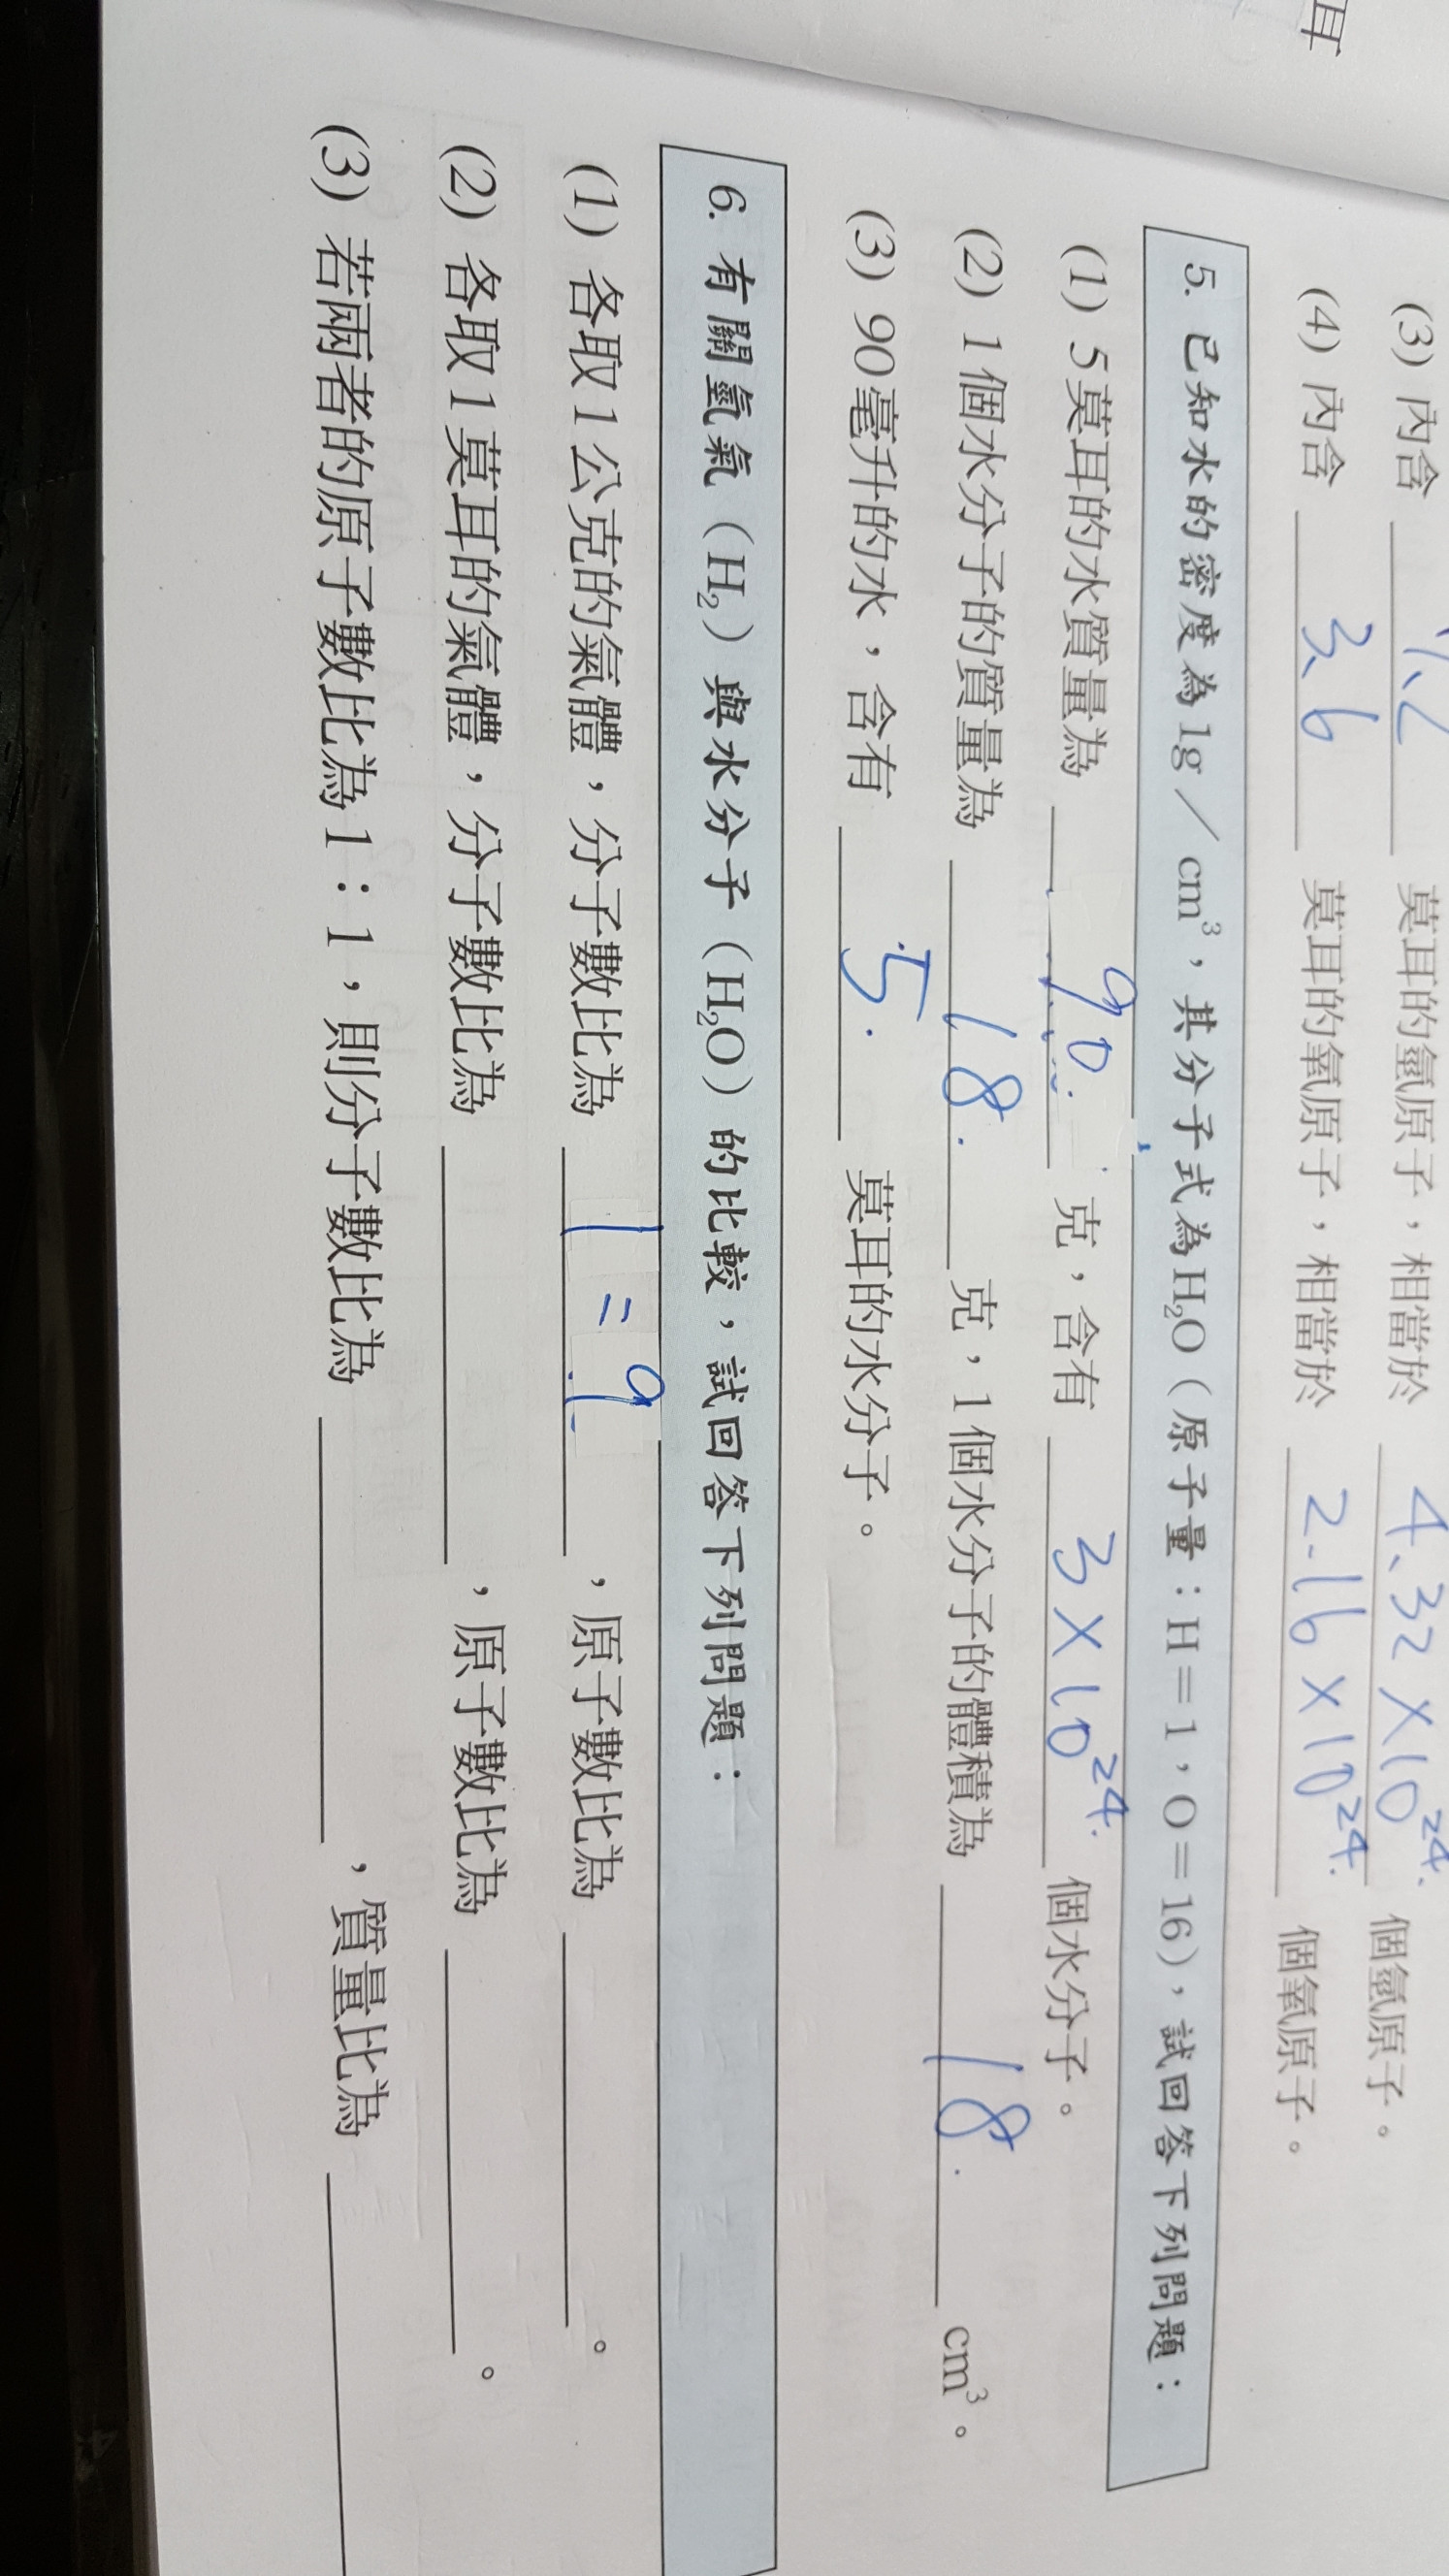 耳
(3) 內含 7.2 莫耳的氫原子，相當於 4.32×10²⁴. 個氫原子。
(4) 內含 3.6 莫耳的氧原子，相當於 2.16×10²⁴. 個氧原子。
5. 已知水的密度為1g／cm³，其分子式為H₂O（原子量：H＝1，O＝16），試回答下列問題：
(1) 5莫耳的水質量為 90. 克，含有 3×10²⁴. 個水分子。
(2) 1個水分子的質量為 18. 克，1個水分子的體積為 18. cm³。
(3) 90毫升的水，含有 5. 莫耳的水分子。
6. 有關氫氣（H₂）與水分子（H₂O）的比較，試回答下列問題：
(1) 各取1公克的氣體，分子數比為 1=9 ，原子數比為 。
(2) 各取1莫耳的氣體，分子數比為 ，原子數比為 。
(3) 若兩者的原子數比為1：1，則分子數比為 ，質量比為